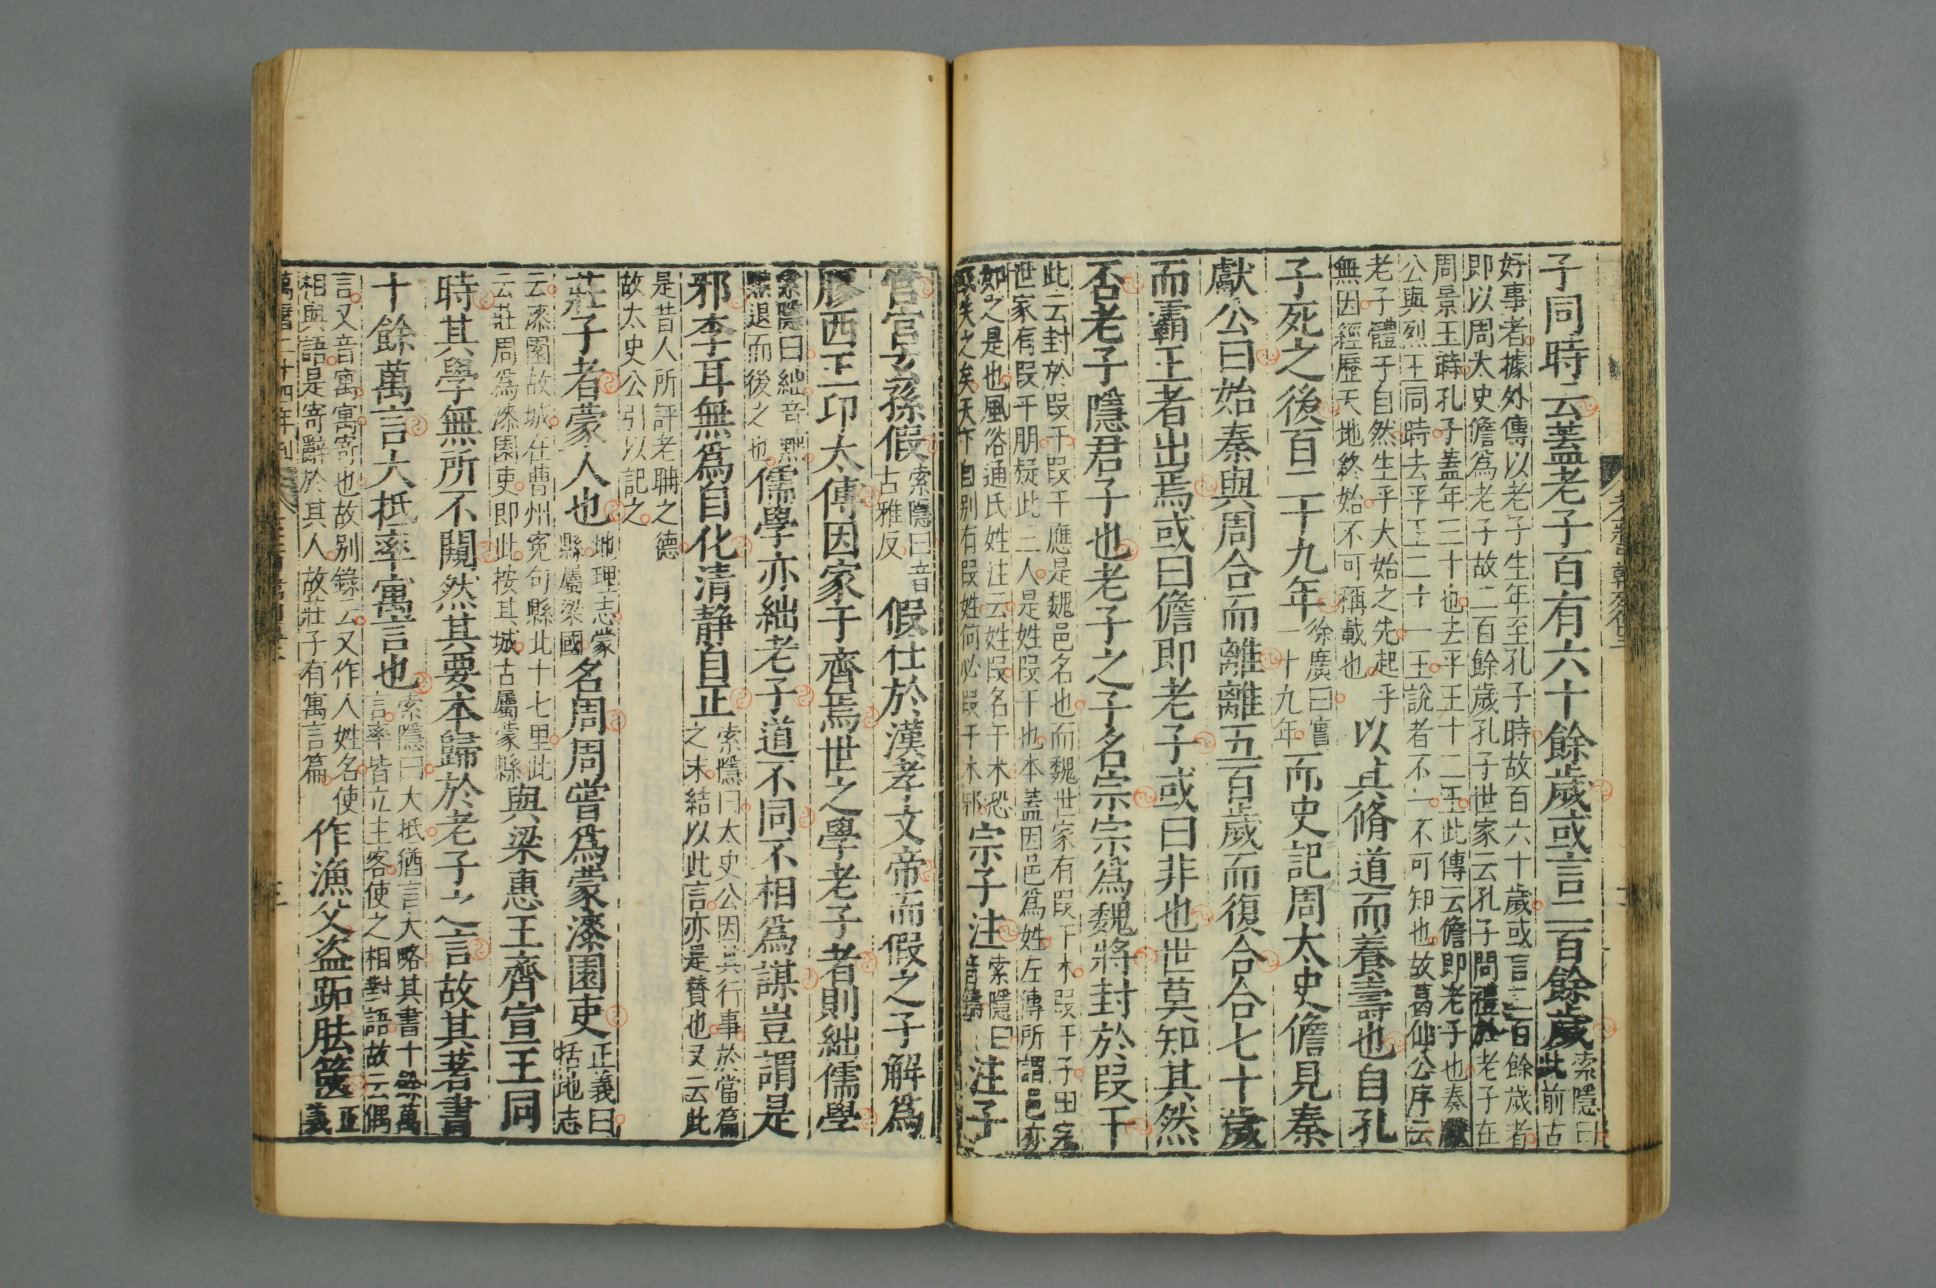 子同時云蓋老子百有六十餘歲或言二百餘歲索隱曰
此前古
好事者據外傳以老子生年至孔子時故百六十歲或言二百餘歲者
即以周太史儋爲老子故二百餘歲孔子世家云孔子問禮於老子在
周景王時孔子蓋年三十也去平王十二王此傳云儋即老子也秦獻
公與烈王同時去平王二十一王說者不一不可知也故葛仙公序云
老子體于自然生乎大始之先起乎
無因經歷天地終始不可稱載也
以其脩道而養壽也自孔
子死之後百二十九年徐廣曰實
一十九年
而史記周太史儋見秦
獻公曰始秦與周合而離離五百歲而復合合七十歲
而霸王者出焉或曰儋即老子或曰非也世莫知其然
否老子隱君子也老子之子名宗宗爲魏將封於叚干
此云封於叚干叚干應是魏邑名也而魏世家有叚干木叚干子田完
世家有叚干朋疑此三人是姓叚干也本蓋因邑爲姓左傳所謂邑亦
如之是也風俗通氏姓注云姓叚名干木恐
失之矣天下自別有叚姓何必叚干木邪
宗子注索隱曰
音鑄
注子
宮宮玄孫假索隱曰音
古雅反
假仕於漢孝文帝而假之子解爲
膠西王卬太傅因家于齊焉世之學老子者則絀儒學
索隱曰絀音黜
黜退而後之也
儒學亦絀老子道不同不相爲謀豈謂是
邪李耳無爲自化清静自正索隱曰太史公因其行事於當篇
之末結以此言亦是贊也又云此
是昔人所評老聃之德
故太史公引以記之
莊子者蒙人也地理志蒙
縣屬梁國
名周周嘗爲蒙漆園吏正義曰
括地志
云漆園故城在曹州寃句縣北十七里此
云莊周爲漆園吏即此按其城古屬蒙縣
與梁惠王齊宣王同
時其學無所不闚然其要本歸於老子之言故其著書
十餘萬言大抵率寓言也索隱曰大抵猶言大略其書十餘萬
言率皆立主客使之相對語故云偶
言又音寓寓寄也故别錄云又作人姓名使
相與語是寄辭於其人故莊子有寓言篇
作漁父盗跖胠篋正
義
萬曆二十四年刊